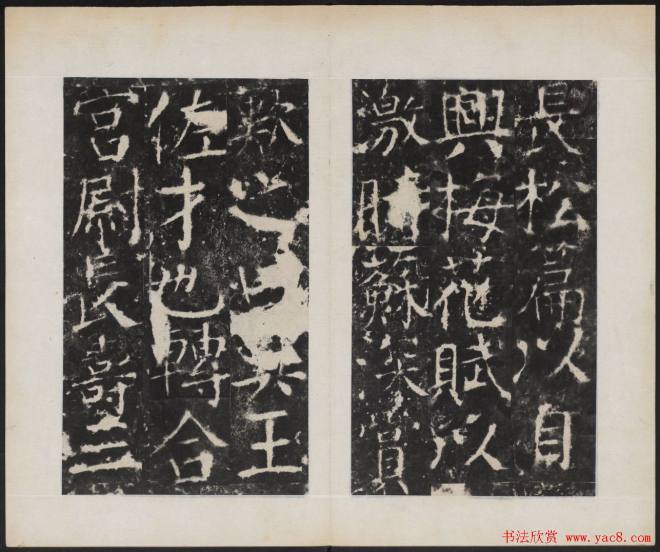 長松篇以自
興梅花賦以
激時蘇深賞
歎之曰真王
佐才也轉合
宮尉長壽三
书法欣赏 www.yac8.com